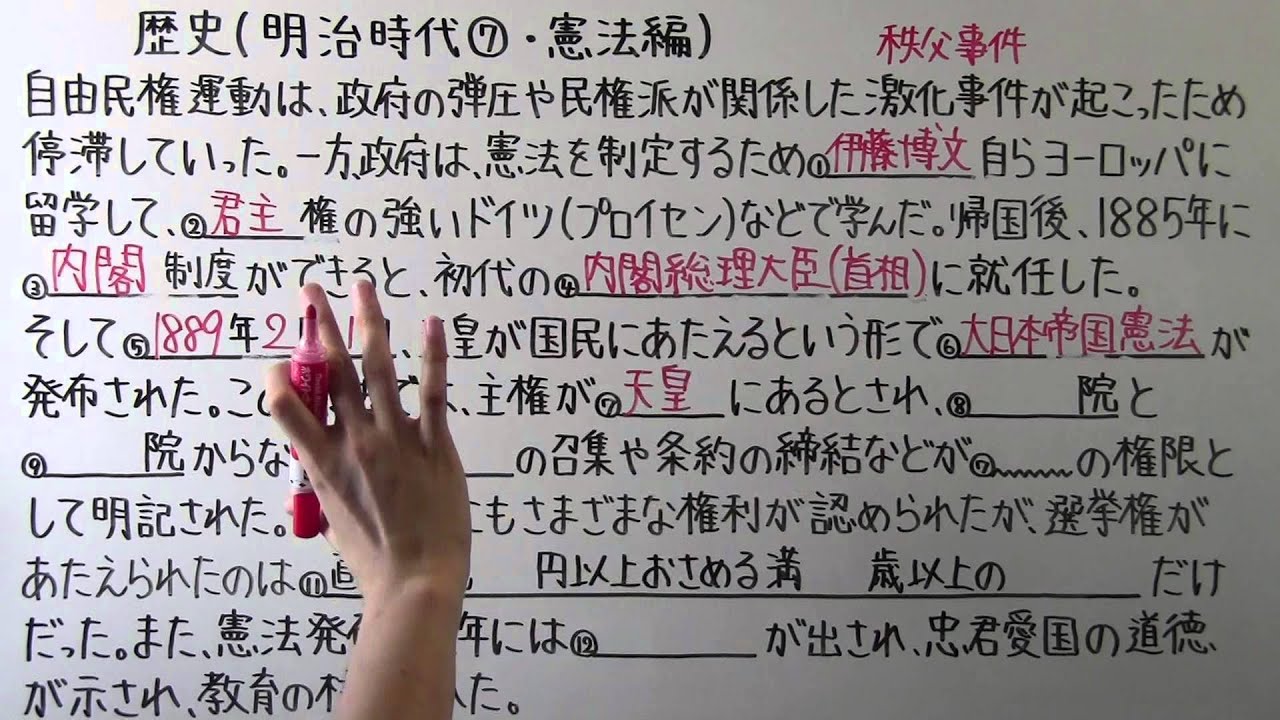 歴史(明治時代⑦・憲法編)
秩父事件
自由民権運動は、政府の弾圧や民権派が関係した激化事件が起こったため
停滞していった。一方、政府は、憲法を制定するため①伊藤博文自らヨーロッパに
留学して、②君主権の強いドイツ(プロイセン)などで学んだ。帰国後、1885年に
③内閣制度ができると、初代の④内閣総理大臣(首相)に就任した。
そして⑤1889年2 1 、皇が国民にあたえるという形で⑥大日本帝国憲法が
発布された。こ は、主権が⑦天皇にあるとされ、⑧ 院と
⑨ 院からな の召集や条約の締結などが⑦ の権限と
して明記された。 にもさまざまな権利が認められたが、選挙権が
あたえられたのは⑪ 円以上おさめる満 歳以上の だけ
だった。また、憲法発 年には⑫ が出され、忠君愛国の道徳
が示され、教育の た。